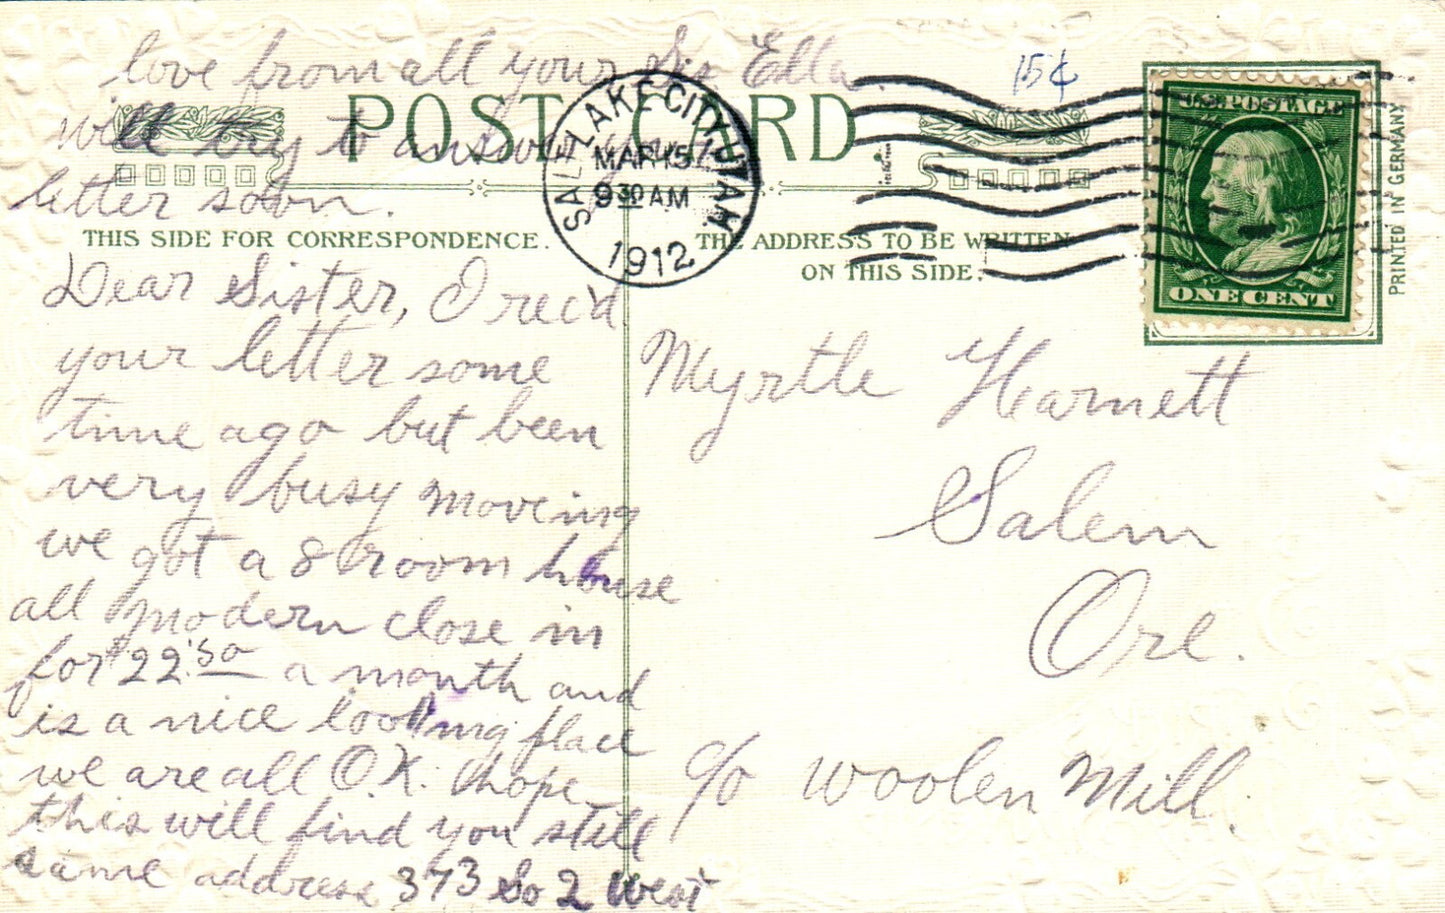 love from all your Sis Ella.
will try to answer your
letter soon.
15¢
POST CARD
SALT LAKE CITY, UTAH.
MAR 15
9 30 AM
1912
U.S. POSTAGE
ONE CENT
PRINTED IN GERMANY
THIS SIDE FOR CORRESPONDENCE.
THE ADDRESS TO BE WRITTEN
ON THIS SIDE.
Dear Sister, I rec'd
your letter some
time ago but been
very busy moveing
we got a 8 room house
all modern close in
for $22.50 a month and
is a nice looking place
we are all O.K. I hope
this will find you still
same address 373 So 2 West
Myrtle Harnett
Salem
Ore.
c/o Woolen Mill.